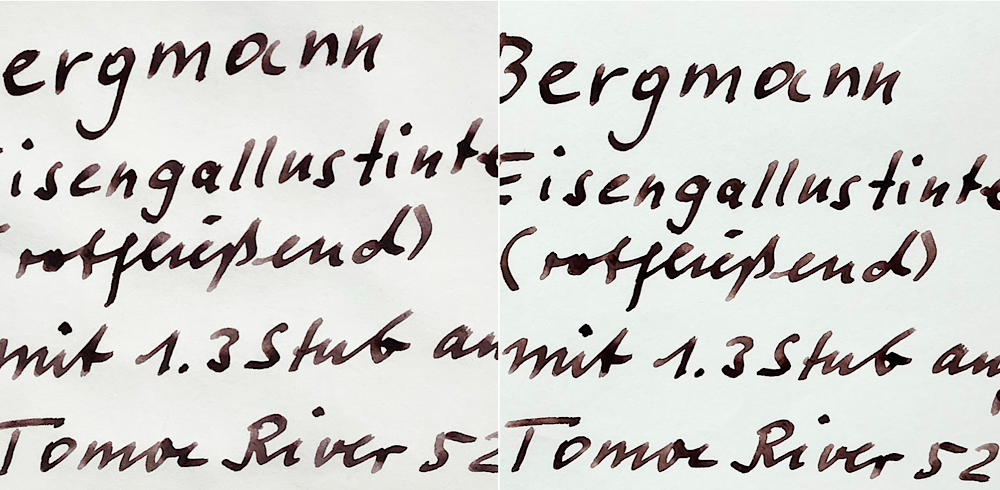 ergmann
isengallustinte
(rotfließend)
mit 1.3 Stub an
Tomoe River 52
Bergmann
Eisengallustinte
(rotfließend)
mit 1.3 Stub auf
Tomoe River 52